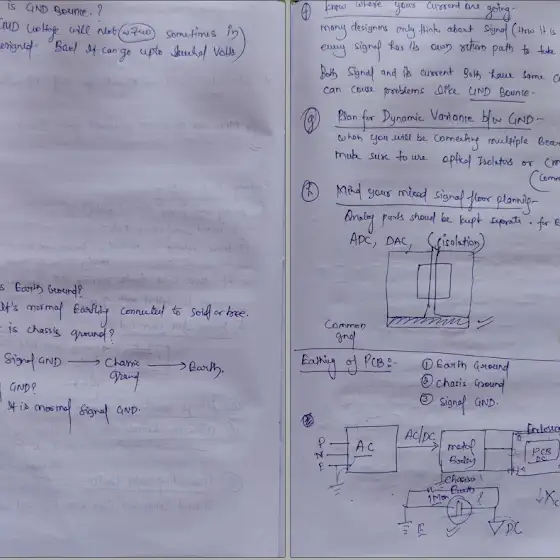 is GND Bounce.?
GND voltage will not sometimes in
Bad it can go upto several Volts
s Earth Ground?
It's normal Earthing connected to soil or tree.
is chassis ground?
Signal GND → Chassis Ground → Earth.
GND?
It is normal Signal GND.
(f) know where your current are going-
many designers only think about signal (How it is
every signal has its own return path to take
Both Signal and its current both have same
can cause problems like GND Bounce.
(g) Plan for Dynamic Variance b/w GND-
when you will be connecting multiple Boar
make sure to use optical Isolators or
(h) Mind your mixed signal floor planning-
Analog parts should be kept seperate. for
ADC, DAC, (isolation)
Common gnd
Earthing of PCB:-
① Earth Ground
② Chasis Ground
③ Signal GND.
P
N
E
AC
AC/DC
metal Body
Enclosu
PCB
DC
Chassis
Earth
1MΩ
E
DC
Xc